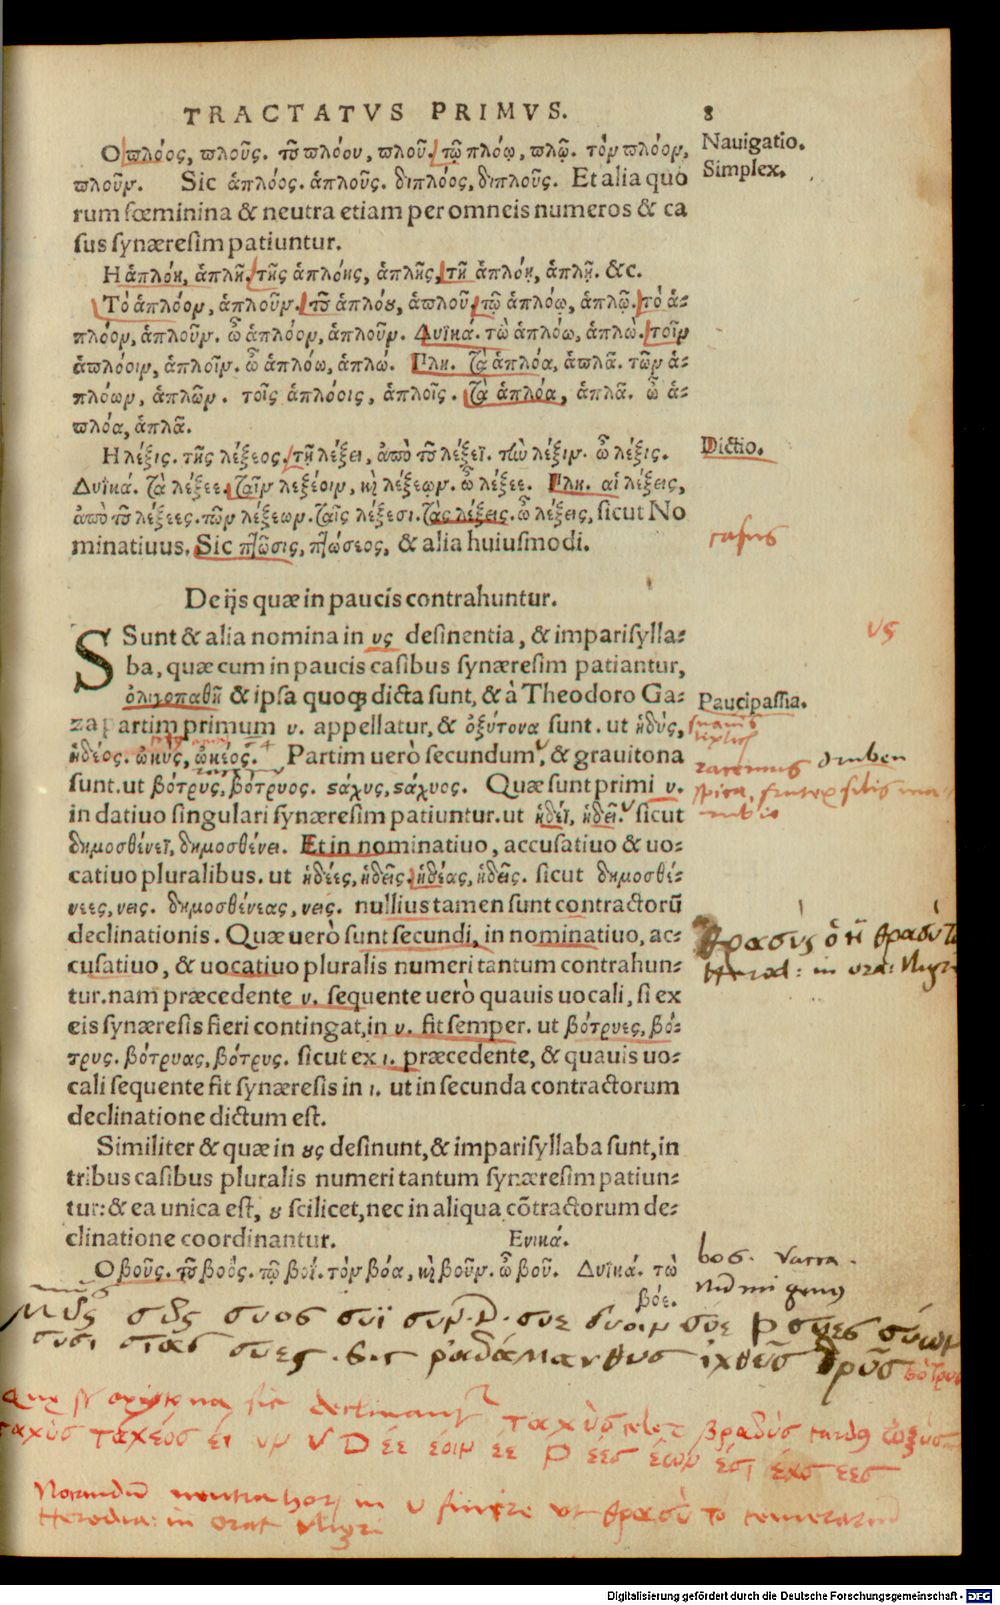 TRACTATVS PRIMVS. 8
Ο πλόος, πλοῦς. τοῦ πλόου, πλοῦ. τῷ πλόῳ, πλῷ. τὸν πλόον, Nauigatio.
πλοῦν. Sic ἁπλόος. ἁπλοῦς. διπλόος, διπλοῦς. Et alia quo Simplex.
rum fœminina & neutra etiam per omneis numeros & ca
sus synæresim patiuntur.
Η ἁπλόη, ἁπλῆ. τῆς ἁπλόης, ἁπλῆς, τῇ ἁπλόῃ, ἁπλῇ. &c.
Τὸ ἁπλόον, ἁπλοῦν. τοῦ ἁπλόου, ἁπλοῦ. τῷ ἁπλόῳ, ἁπλῷ. τὸ ἁ-
πλόον, ἁπλοῦν. ὦ ἁπλόον, ἁπλοῦν. Δυϊκά. τὼ ἁπλόω, ἁπλώ. τοῖν
ἁπλόοιν, ἁπλοῖν. ὦ ἁπλόω, ἁπλώ. Πλη. Τὰ ἁπλόα, ἁπλᾶ. τῶν ἁ-
πλόων, ἁπλῶν. τοῖς ἁπλόοις, ἁπλοῖς. Τὰ ἁπλόα, ἁπλᾶ. ὦ ἁ-
πλόα, ἁπλᾶ.
Η λέξις. τῆς λέξεος. τῇ λέξει, ἀπὸ τοῦ λέξεϊ. τὴν λέξιν. ὦ λέξις. Dictio.
Δυϊκά. Τὰ λέξεε. Ταῖν λεξέοιν, καὶ λέξεῳν. ὦ λέξεε. Πλη. αἱ λέξεις,
ἀπὸ τοῦ λέξεες. τῶν λέξεων. Ταῖς λέξεσι. Τὰς λέξεις. ὦ λέξεις, sicut No
minatiuus. Sic πτῶσις, πτώσεος, & alia huiusmodi. casus
De ijs quæ in paucis contrahuntur.
SSunt & alia nomina in υς desinentia, & imparisylla- υς
ba, quæ cum in paucis casibus synæresim patiantur,
ὀλιγοπαθῆ & ipsa quoq; dicta sunt, & à Theodoro Ga- Paucipassia.
za partim primum υ. appellatur, & ὀξύτονα sunt. ut ἡδύς, suauis
ἡδέος. ὠκὺς, ὠκέος. Partim uerò secundum, & grauitona racemus druben
sunt. ut βότρυς, βότρυος. στάχυς, στάχυος. Quæ sunt primi υ. spica,
in datiuo singulari synæresim patiuntur. ut ἡδέϊ, ἡδεῖ. sicut
δημοσθένεϊ, δημοσθένει. Et in nominatiuo, accusatiuo & uo-
catiuo pluralibus. ut ἡδέες, ἡδεῖς. ἡδέας, ἡδεῖς. sicut δημοσθέ-
νεες, νεις. δημοσθένεας, νεις. nullius tamen sunt contractorũ
declinationis. Quæ uerò sunt secundi, in nominatiuo, ac- θρασύς
cusatiuo, & uocatiuo pluralis numeri tantum contrahun- Herod: in ora:
tur. nam præcedente υ. sequente uerò quauis uocali, si ex
eis synæresis fieri contingat, in υ. fit semper. ut βότρυες, βό-
τρυς. βότρυας, βότρυς. sicut ex ι. præcedente, & quauis uo-
cali sequente fit synæresis in ι. ut in secunda contractorum
declinatione dictum est.
Similiter & quæ in ους desinunt, & imparisyllaba sunt, in
tribus casibus pluralis numeri tantum synæresim patiun-
tur: & ea unica est, ου scilicet, nec in aliqua cõtractorum de-
clinatione coordinantur. Ενικά.
Ο βοῦς. τοῦ βοός. τῷ βοΐ. τὸν βόα, καὶ βοῦν. ὦ βοῦ. Δυϊκά. τὼ bos. vacca.
βόε.
σῦς συος συϊ συν. D. συε συοιν P συες σύων
συσι συας συες ῥαδάμανθυς ἰχθῦς δρῦς βότρυς
declinant ταχὺς βραδὺς tardus
ταχὺς ταχέος ει υν υ D έε έοιν έε P έες έων έσι έας έες
Notandum neutra in υ finire ut θρασὺ το temerarium
Herodia: in orat
Digitalisierung gefördert durch die Deutsche Forschungsgemeinschaft - DFG